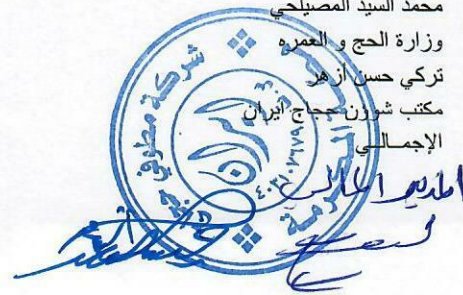 محمد السيد المصيلحي
وزارة الحج و العمره
تركي حسن أزهر
مكتب شوزن حجاج ايران
الإجمــالـي
شركة مطوفي حجاج
إيران
المكرمة
المدير المالي